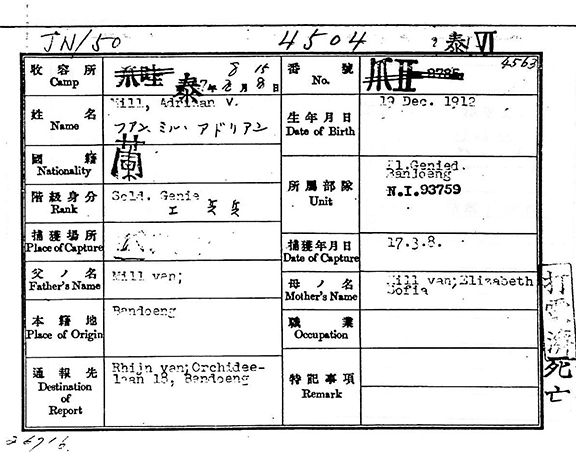 JN/50
4504
泰 VI
收容所
Camp
爪哇
泰
8 15
7年 8月 8日
番號
No.
爪 II
4563
姓名
Name
Mill, Adriaan v.
フアン.ミル.アドリアン
生年月日
Date of Birth
19 Dec. 1912
國籍
Nationality
蘭
階級身分
Rank
Sold. Genie
工兵兵
所属部隊
Unit
Bl.Genied.
Bandoeng
N.I.93759
捕獲場所
Place of Capture
捕獲年月日
Date of Capture
17.3.8.
父ノ名
Father's Name
Mill van;
母ノ名
Mother's Name
Mill van;Elizabeth
Sofia
本籍地
Place of Origin
Bandoeng
職業
Occupation
通報先
Destination
of
Report
Rhijn van;Orchidee-
laan 18, Bandoeng
特記事項
Remark
打電濟
死亡
26716